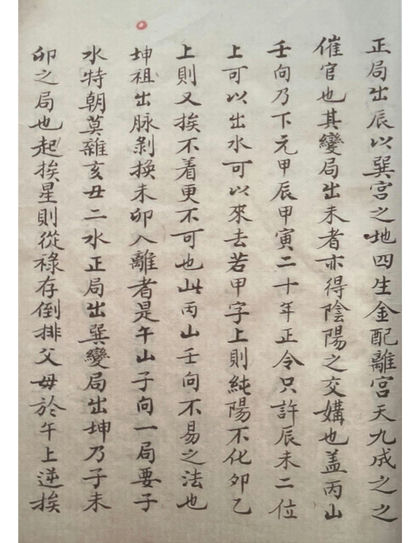 正局出辰以巽宮之地四生金配離宮天九成之之
催官也其變局出未者亦得陰陽之交媾也盖丙山
壬向乃下元甲辰甲寅二十年正令只許辰未二位
上可以出水可以來去若甲字上則純陽不化卯乙
上則又挨不着更不可也此丙山壬向不易之法也
坤祖出脉剝換未卯入離者是午山子向一局要子
水特朝莫離亥丑二水正局出巽變局出坤乃子未
卯之局也起挨星則從祿存倒排父母於午上逆挨